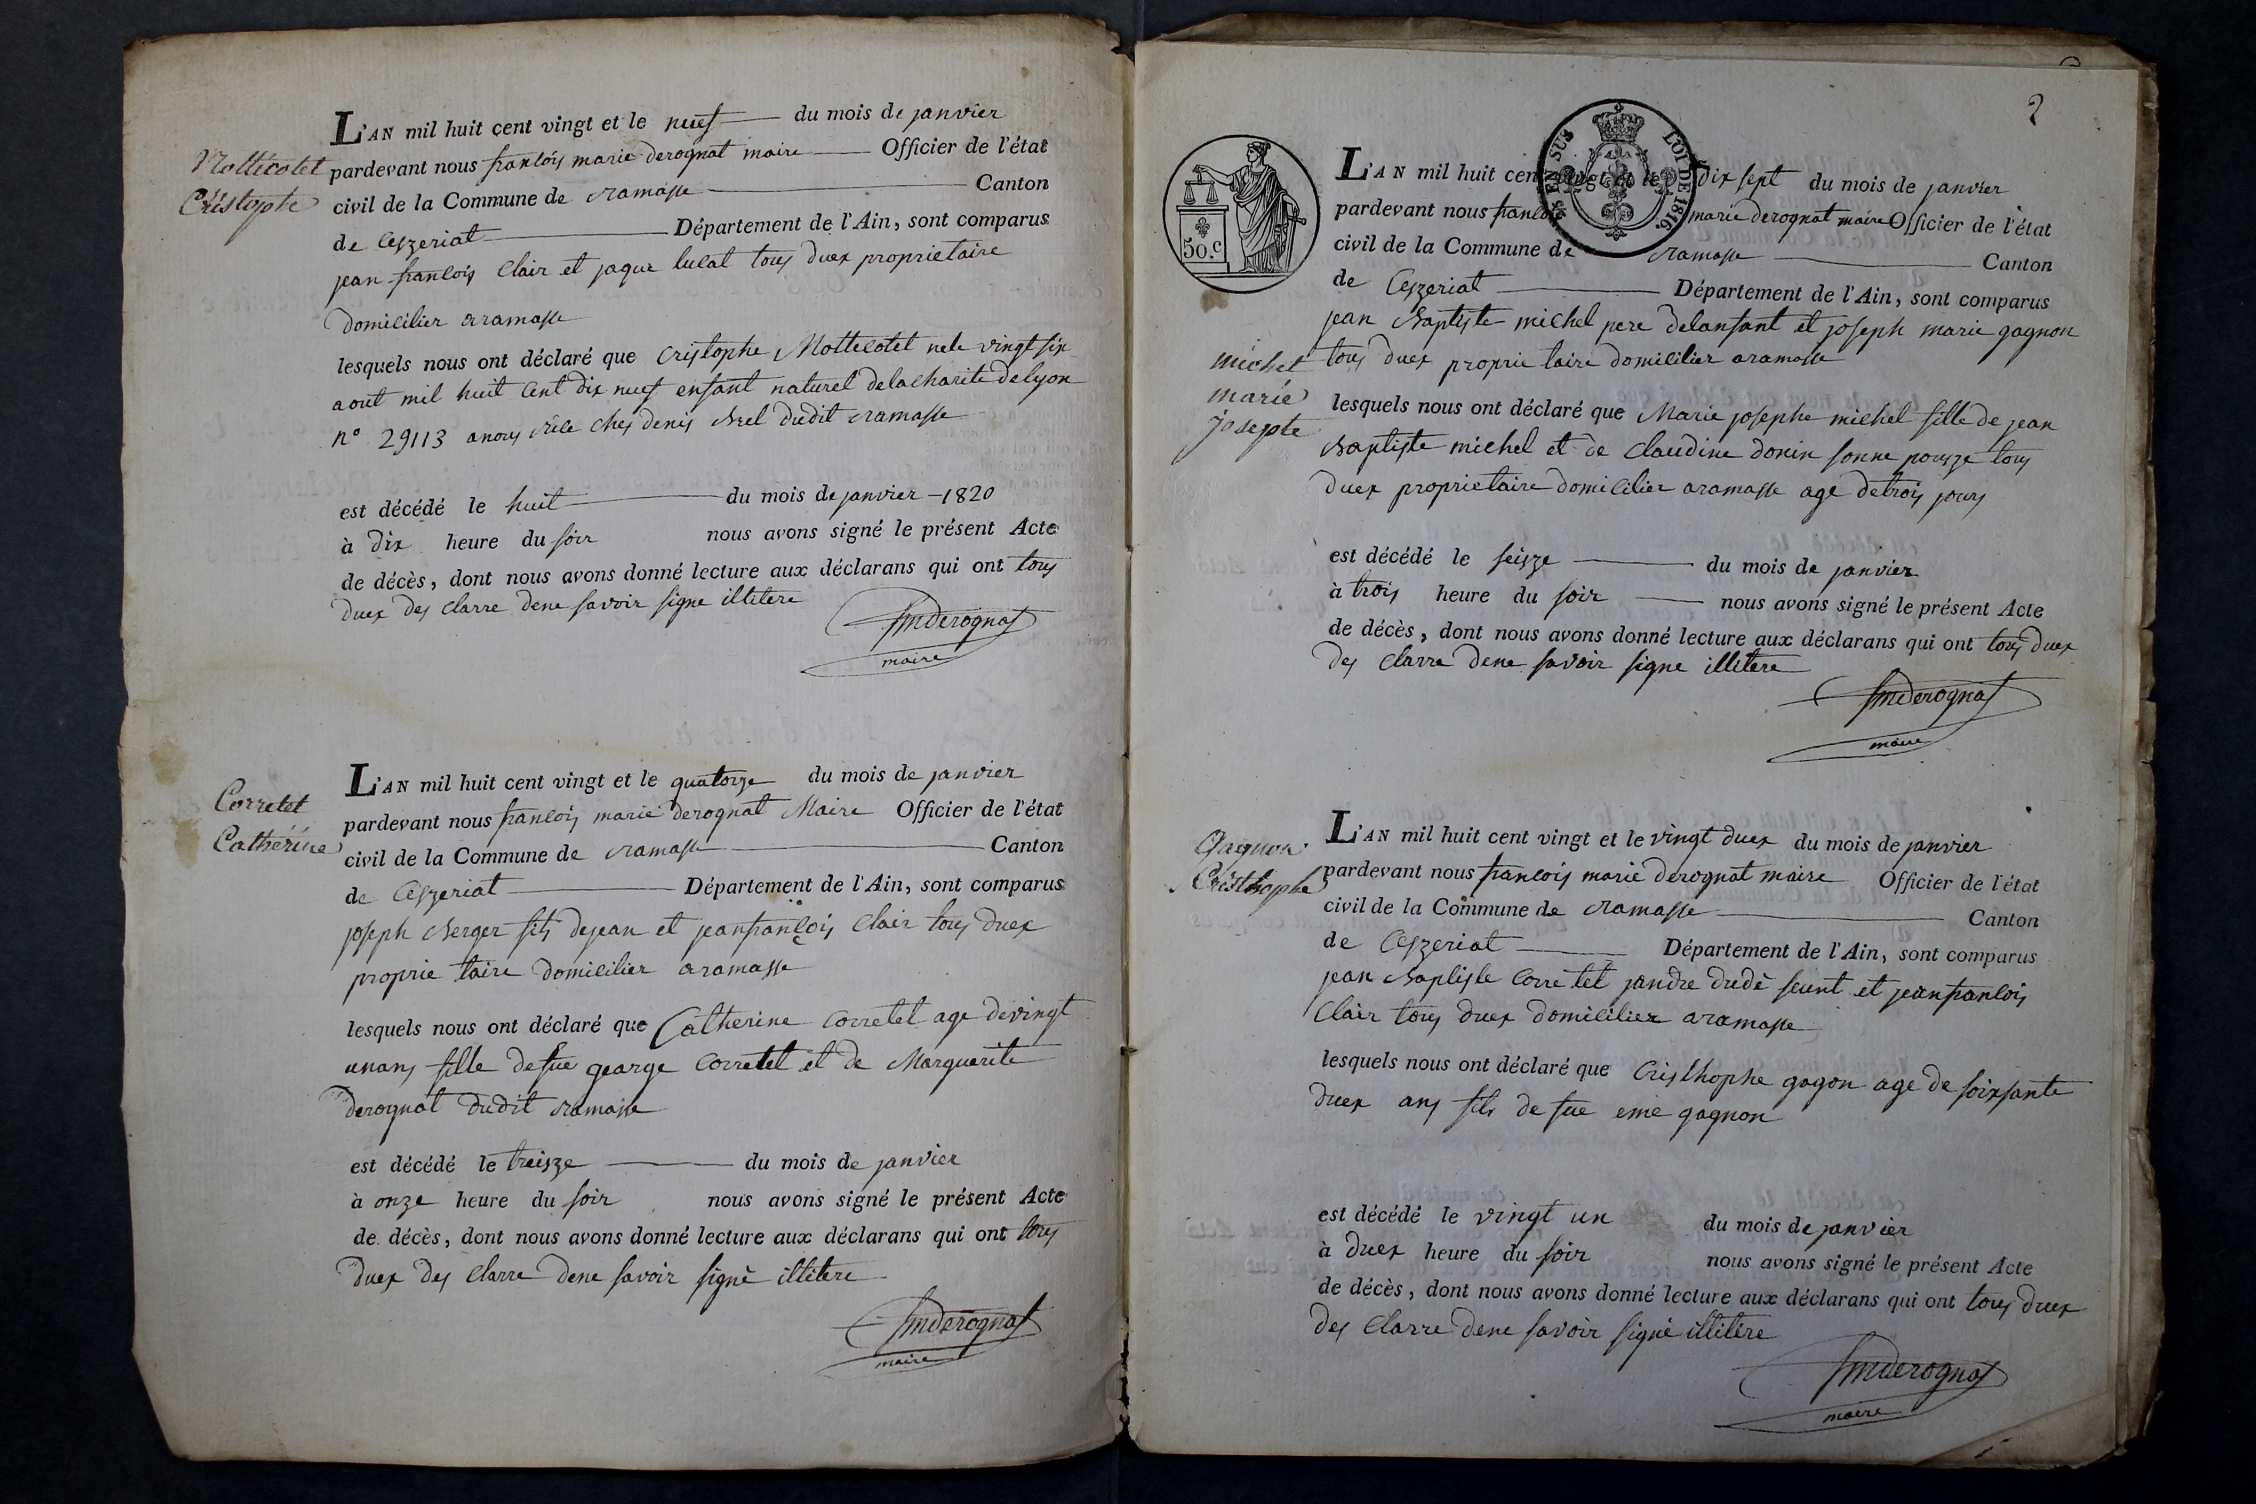 L'AN mil huit cent vingt et le neuf du mois de janvier
Mottecotet pardevant nous francois marie derognat maire Officier de l'état
Cristophe civil de la Commune de ramasse Canton
de Ceyzeriat Département de l'Ain, sont comparus
jean francois Clair et jaque lucat tous duex proprietaire
domicilier aramasse
lesquels nous ont déclaré que Cristophe Mottecotet nele vingt six
aout mil huit Cent dix neuf enfant naturel delacharite delyon
n° 29113 ches denis Brel dudit ramasse
est décédé le huit du mois de janvier 1820
à dix heure du soir nous avons signé le présent Acte
de décès, dont nous avons donné lecture aux déclarans qui ont tous
duex des Clarre dene savoir signe illitere
fmderognat
maire
L'AN mil huit cent vingt et le quatorze du mois de janvier
Corretet pardevant nous francois marie derognat Maire Officier de l'état
Catherine civil de la Commune de ramasse Canton
de Ceyzeriat Département de l'Ain, sont comparus
joseph Berger fils dejean et jeanfrançois Clair tous duex
proprie taire domicilier aramasse
lesquels nous ont déclaré que Catherine Corretet age devingt
unans fille defue gearge Corretet et de Marguerite
derognat dudit ramasse
est décédé le treisze du mois de janvier
à onze heure du soir nous avons signé le présent Acte
de décès, dont nous avons donné lecture aux déclarans qui ont tous
duex des Clarre dene savoir signè illitere
fmderognat
maire
2
50.C
EN SUS LOI DE 1816.
L'AN mil huit cent vingt et le dix sept du mois de janvier
pardevant nous francois marie derognat maire Officier de l'état
civil de la Commune de ramasse Canton
de Ceyzeriat Département de l'Ain, sont comparus
jean Baptiste michel pere delanfant et joseph marie gagnon
michel tous duex proprie taire domicilier aramasse
marie
josepte
lesquels nous ont déclaré que Marie josephe michel fille de jean
Baptiste michel et de Claudine donin sonne pousze tous
duex proprietaire domicilier aramasse age detrois jours
est décédé le seisze du mois de janvier
à trois heure du soir nous avons signé le présent Acte
de décès, dont nous avons donné lecture aux déclarans qui ont tous duex
des Clarre dene savoir signe illitere
fmderognat
maire
L'AN mil huit cent vingt et le vingt duex du mois de janvier
Gagnon pardevant nous francois marie derognat maire Officier de l'état
Cristhophe civil de la Commune de ramasse Canton
de Ceyzeriat Département de l'Ain, sont comparus
jean Baptiste Corretet jandre dudè feunt et jeanfrancois
Clair tous duex domicilier aramasse
lesquels nous ont déclaré que Cristhophe gagon age de soixsante
duex ans fils de fue emè gagnon
est décédé le vingt un du mois de janvier
à duex heure du soir nous avons signé le présent Acte
de décès, dont nous avons donné lecture aux déclarans qui ont tous duex
des Clarre dene savoir signè illitère
fmderognat
maire